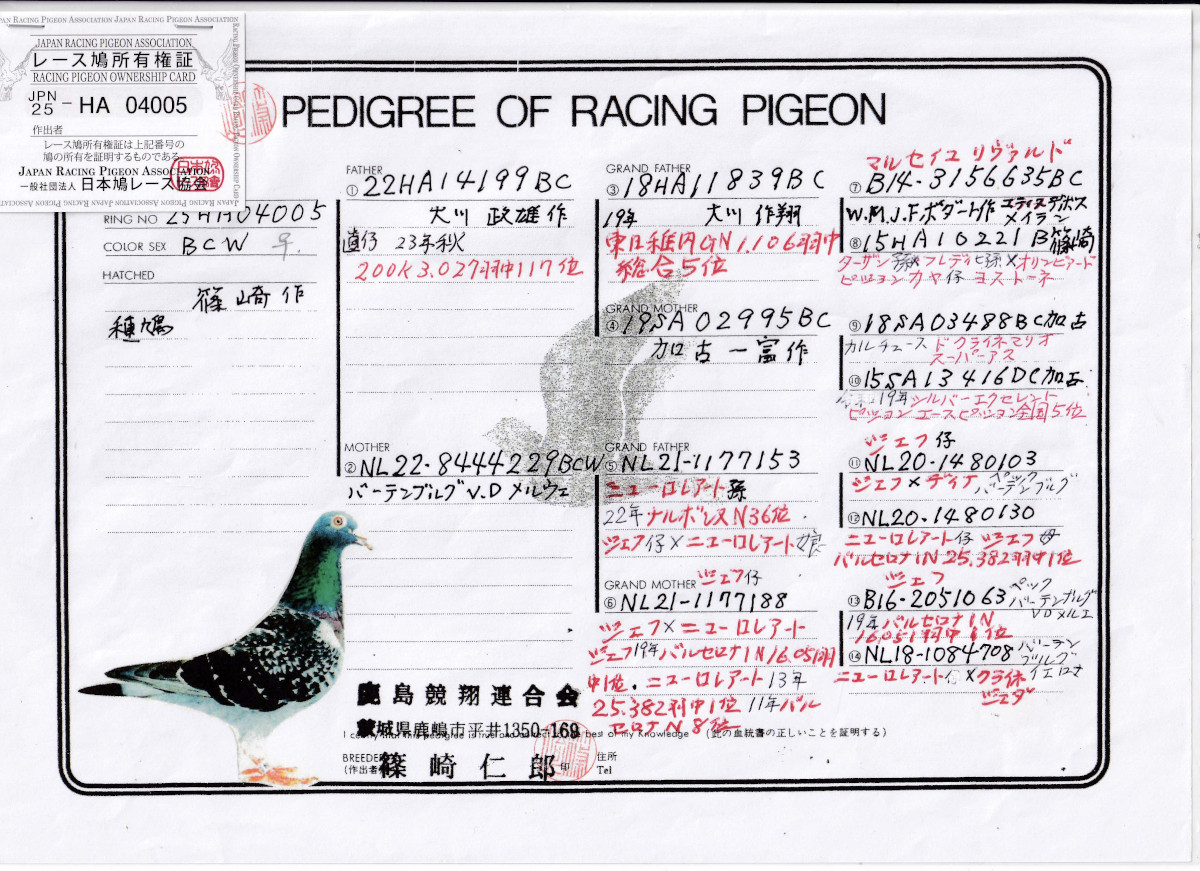 JAPAN RACING PIGEON ASSOCIATION JAPAN RACING PIGEON ASSOCIATION
JAPAN RACING PIGEON ASSOCIATION
レース鳩所有権証
RACING PIGEON OWNERSHIP CARD
JPN 25 - HA 04005
作出者
レース鳩所有権証は上記番号の
鳩の所有を証明するものである
JAPAN RACING PIGEON ASSOCIATION
一般社団法人 日本鳩レース協会
PEDIGREE OF RACING PIGEON
RING NO 25HA04005
COLOR SEX BCW ♀.
HATCHED
篠崎作
種鳩
FATHER
① 22HA14199BC
大川 政雄作
直仔 23年秋
200K 3.027羽中117位
MOTHER
② NL22-8444229BCW
バーテンブルグ V.D メルウェ
GRAND FATHER
③ 18HA11839BC
19年 大川 作翔
東日稚内GN 1.106羽中
総合5位
GRAND MOTHER
④ 19SA02995BC
加古一富作
GRAND FATHER
⑤ NL21-1177153
ニューロレアート孫
22年ナルボンヌN36位.
ジェフ仔×ニューロレアート娘
GRAND MOTHER ジェフ仔
⑥ NL21-1177188
ジェフ×ニューロレアート
ジェフ19年バルセロナIN16.051羽
中1位.ニューロレアート13年
25.382羽中1位 11年バル
セロナN8位
マルセイユ リヴァルド
⑦ B14-3156635BC
W.M.J.F.ボダート作 エティエヌデボス
メイラン
⑧ 15HA10221B篠崎
ターザン孫×フレディ孫×オリンピアード
ピッジョン カヤ仔 ヨストーネ
⑨ 18SA03488BC加古
カルチュース ドクライネマリオ
スーパーアス
⑩ 15SA13416DC加古
19年シルバーエクセレント
ピッジョン エースピッジョン全国5位
ジェフ仔
⑪ NL20-1480103
ジェフ×ディナ ペック
バーテンブルグ
⑫ NL20-1480130
ニューロレアート仔 ジェフ母
バルセロナIN 25.382羽中1位
ジェフ
⑬ B16-2051063 ペック
バーテンブルグ
V.D メルエ
19年バルセロナIN
16.051羽中1位
⑭ NL18-1084708 バーテン
ブルグ
ニューロレアート仔×クライネ イエロナ
ジェダ
鹿島競翔連合会
茨城県鹿嶋市平井1350-169
I certify that this pedigree is true best of my knowledge (此の血統書の正しいことを証明する)
BREEDER
(作出者) 篠崎仁郎 印
住所
Tel